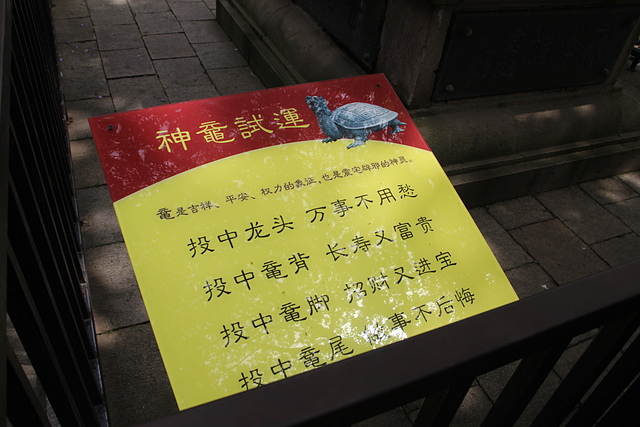 神鼋試運
鼋是吉祥、平安、权力的象征,也是宅辟邪的神灵。
投中龙头 万事不用愁
投中鼋背 长寿又富贵
投中鼋脚 招财又进宝
投中鼋尾 事不后悔